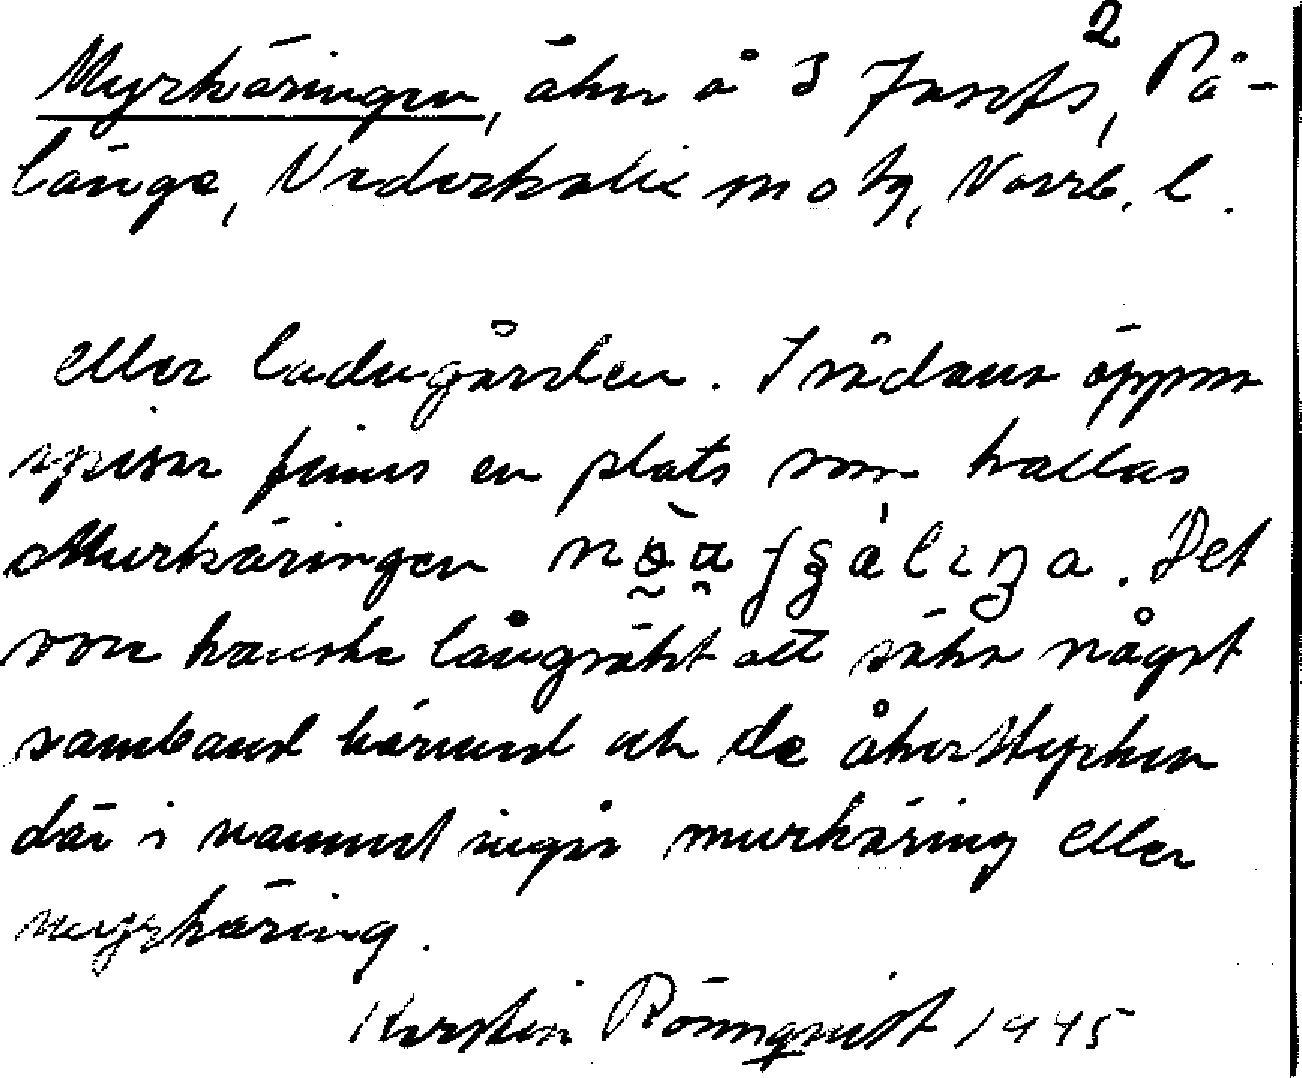 2
Myrkäringen, åker å 3 Josefs, På-
länge, Nederkalix sn o tg, Norrb. l.
eller ladugården. I sådana öppna
spisar finns en plats som kallas
Murkäringen. Det
vore kanske långsökt att söka något
samband härmed och de åkerstycken
där i namnet ingår murkäring eller
myrkäring.
Kerstin Rönnqvist 1945